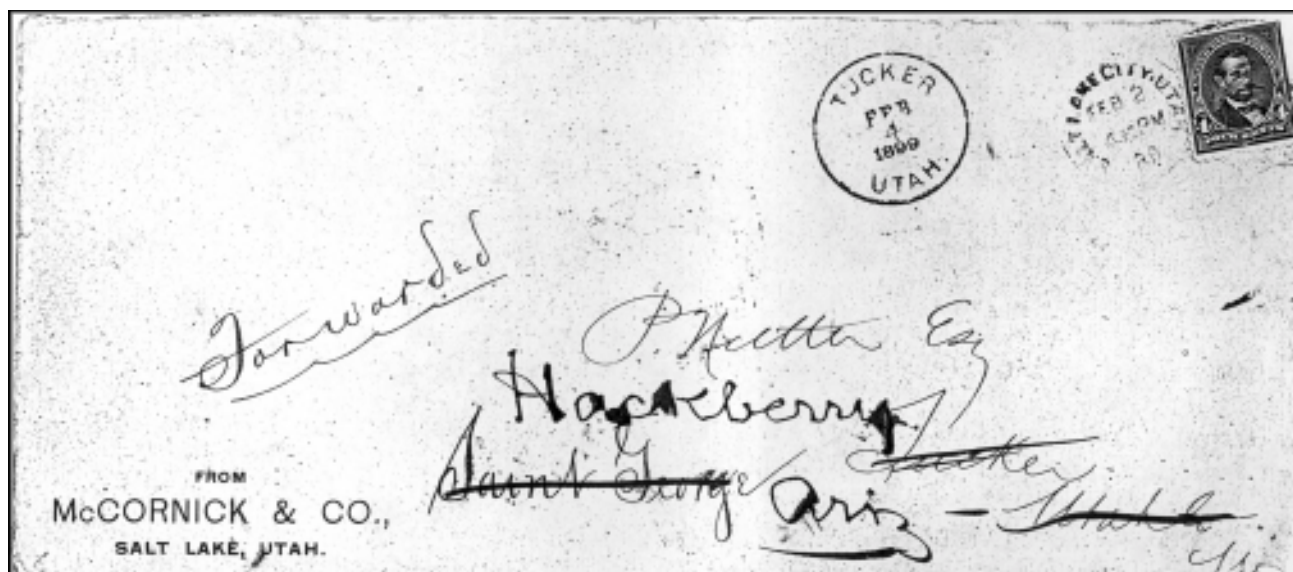 TUCKER
FEB
4
1899
UTAH.
LAKE CITY, UTAH
FEB 2
PM
4 4
Forwarded
P. Nutter Esq
Hackberry
Saint George Tucker
Ariz - Utah
FROM
McCORNICK & CO.,
SALT LAKE, UTAH.